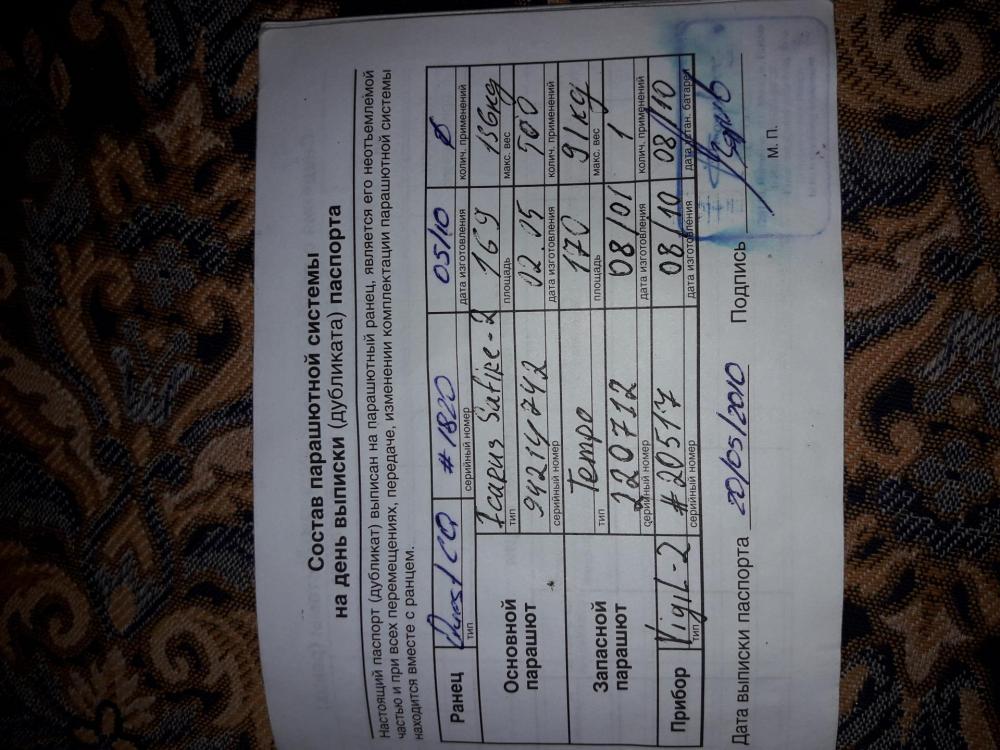 Состав парашютной системы
на день выписки (дубликата) паспорта
Настоящий паспорт (дубликат) выписан на парашютный ранец, является его неотъемлемой
частью и при всех перемещениях, передаче, изменении комплектации парашютной системы
находится вместе с ранцем.
Ранец # 1820 05/10 0
тип серийный номер дата изготовления колич. применений
Основной парашют
Icarus Safire-2 169 136kg
тип площадь макс. вес
94214742 02.05 500
серийный номер дата изготовления колич. применений
Запасной парашют
Tempo 170 91kg
тип площадь макс. вес
220712 08/01 1
серийный номер дата изготовления колич. применений
Прибор Vigil-2 #20517 08/10 08/10
тип серийный номер дата изготовления дата устан. батареи
Дата выписки паспорта 20/05/2010 Подпись
М. П.